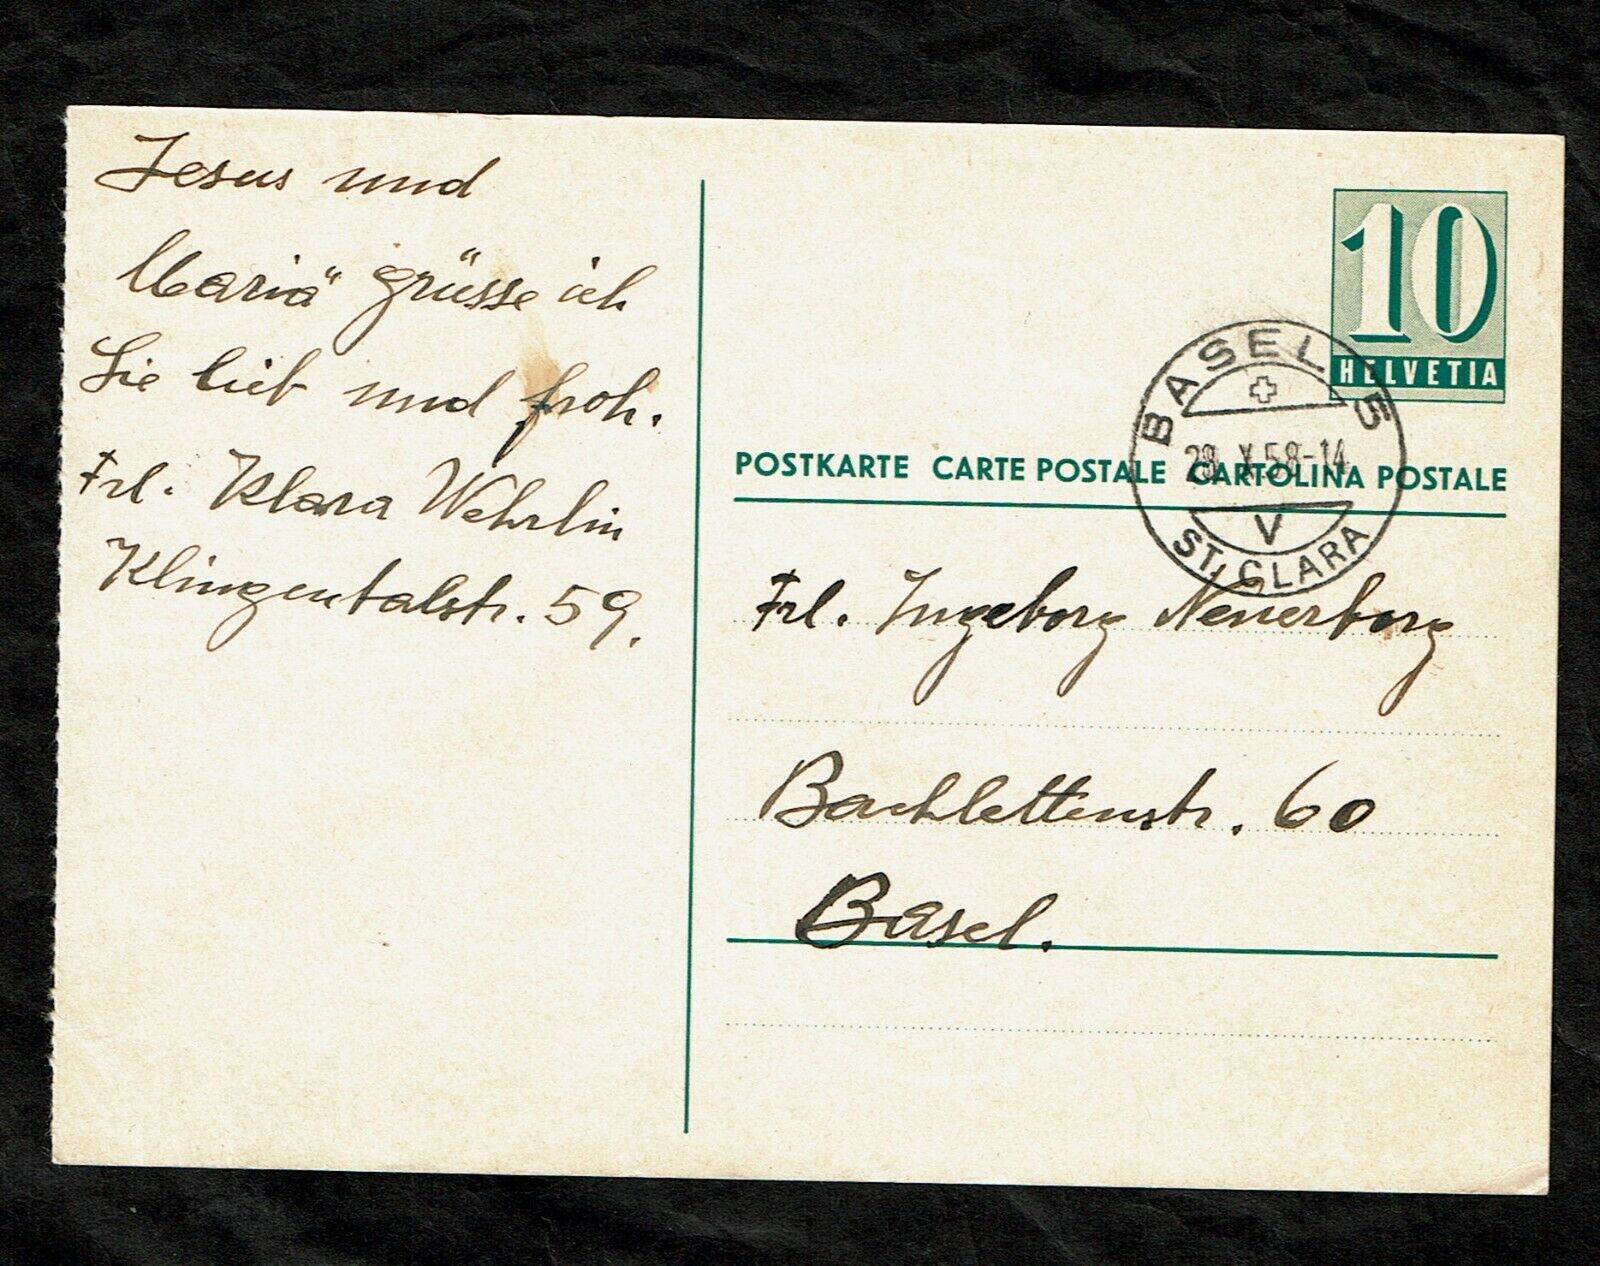 Jesus und
Mariä grüsse ich
Sie lieb und froh.
Frl. Klara Wehrlin
Klingentalstr. 59.
10
HELVETIA
BASEL 5
28. X. 58-14
V
ST. CLARA
POSTKARTE CARTE POSTALE CARTOLINA POSTALE
Frl. Ingeborg Neuerborg
Bachlettenstr. 60
Basel.